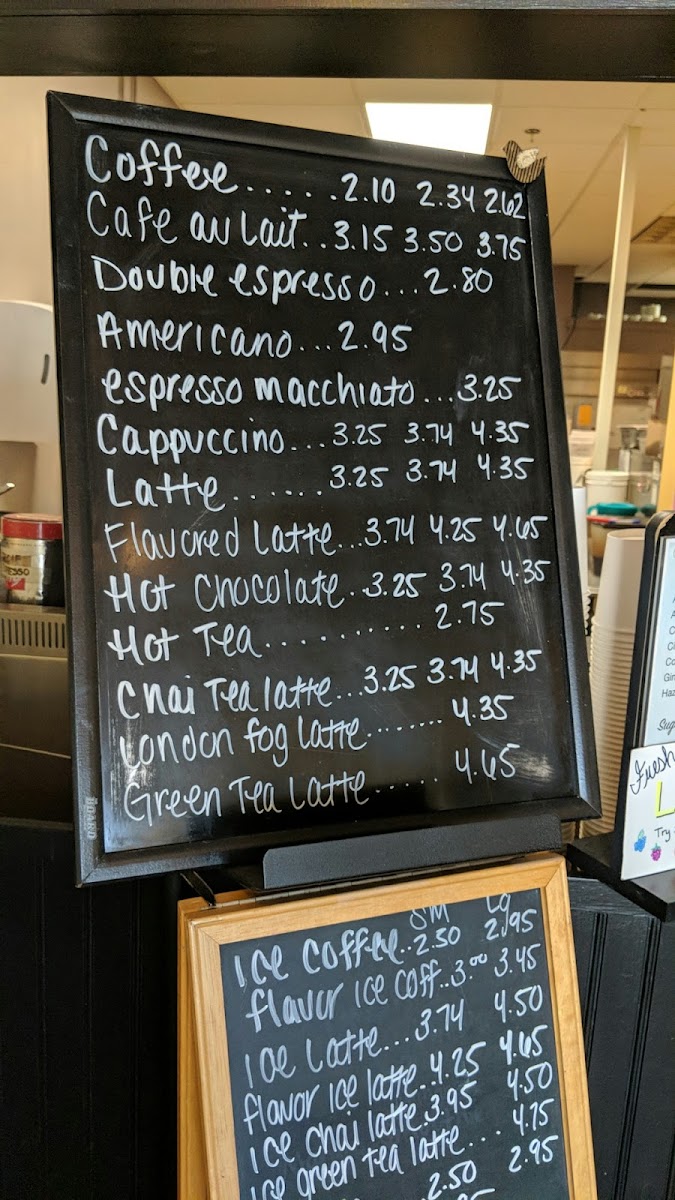 Coffee.....2.10 2.34 2.62
Cafe au Lait..3.15 3.50 3.75
Double espresso...2.80
Americano...2.95
espresso macchiato...3.25
Cappuccino...3.25 3.74 4.35
Latte......3.25 3.74 4.35
Flavored Latte...3.74 4.25 4.65
Hot Chocolate..3.25 3.74 4.35
Hot Tea...........2.75
Chai Tea latte...3.25 3.74 4.35
London fog latte.......4.35
Green Tea Latte.....4.65
BOARD
SM Lg
Ice Coffee..2.50 2.95
flavor ice coff..3.00 3.45
Ice Latte...3.74 4.50
flavor ice latte..4.25 4.65
Ice chai latte.3.95 4.50
Ice green tea latte... 4.75
2.50 2.95
Fresh
L
Try